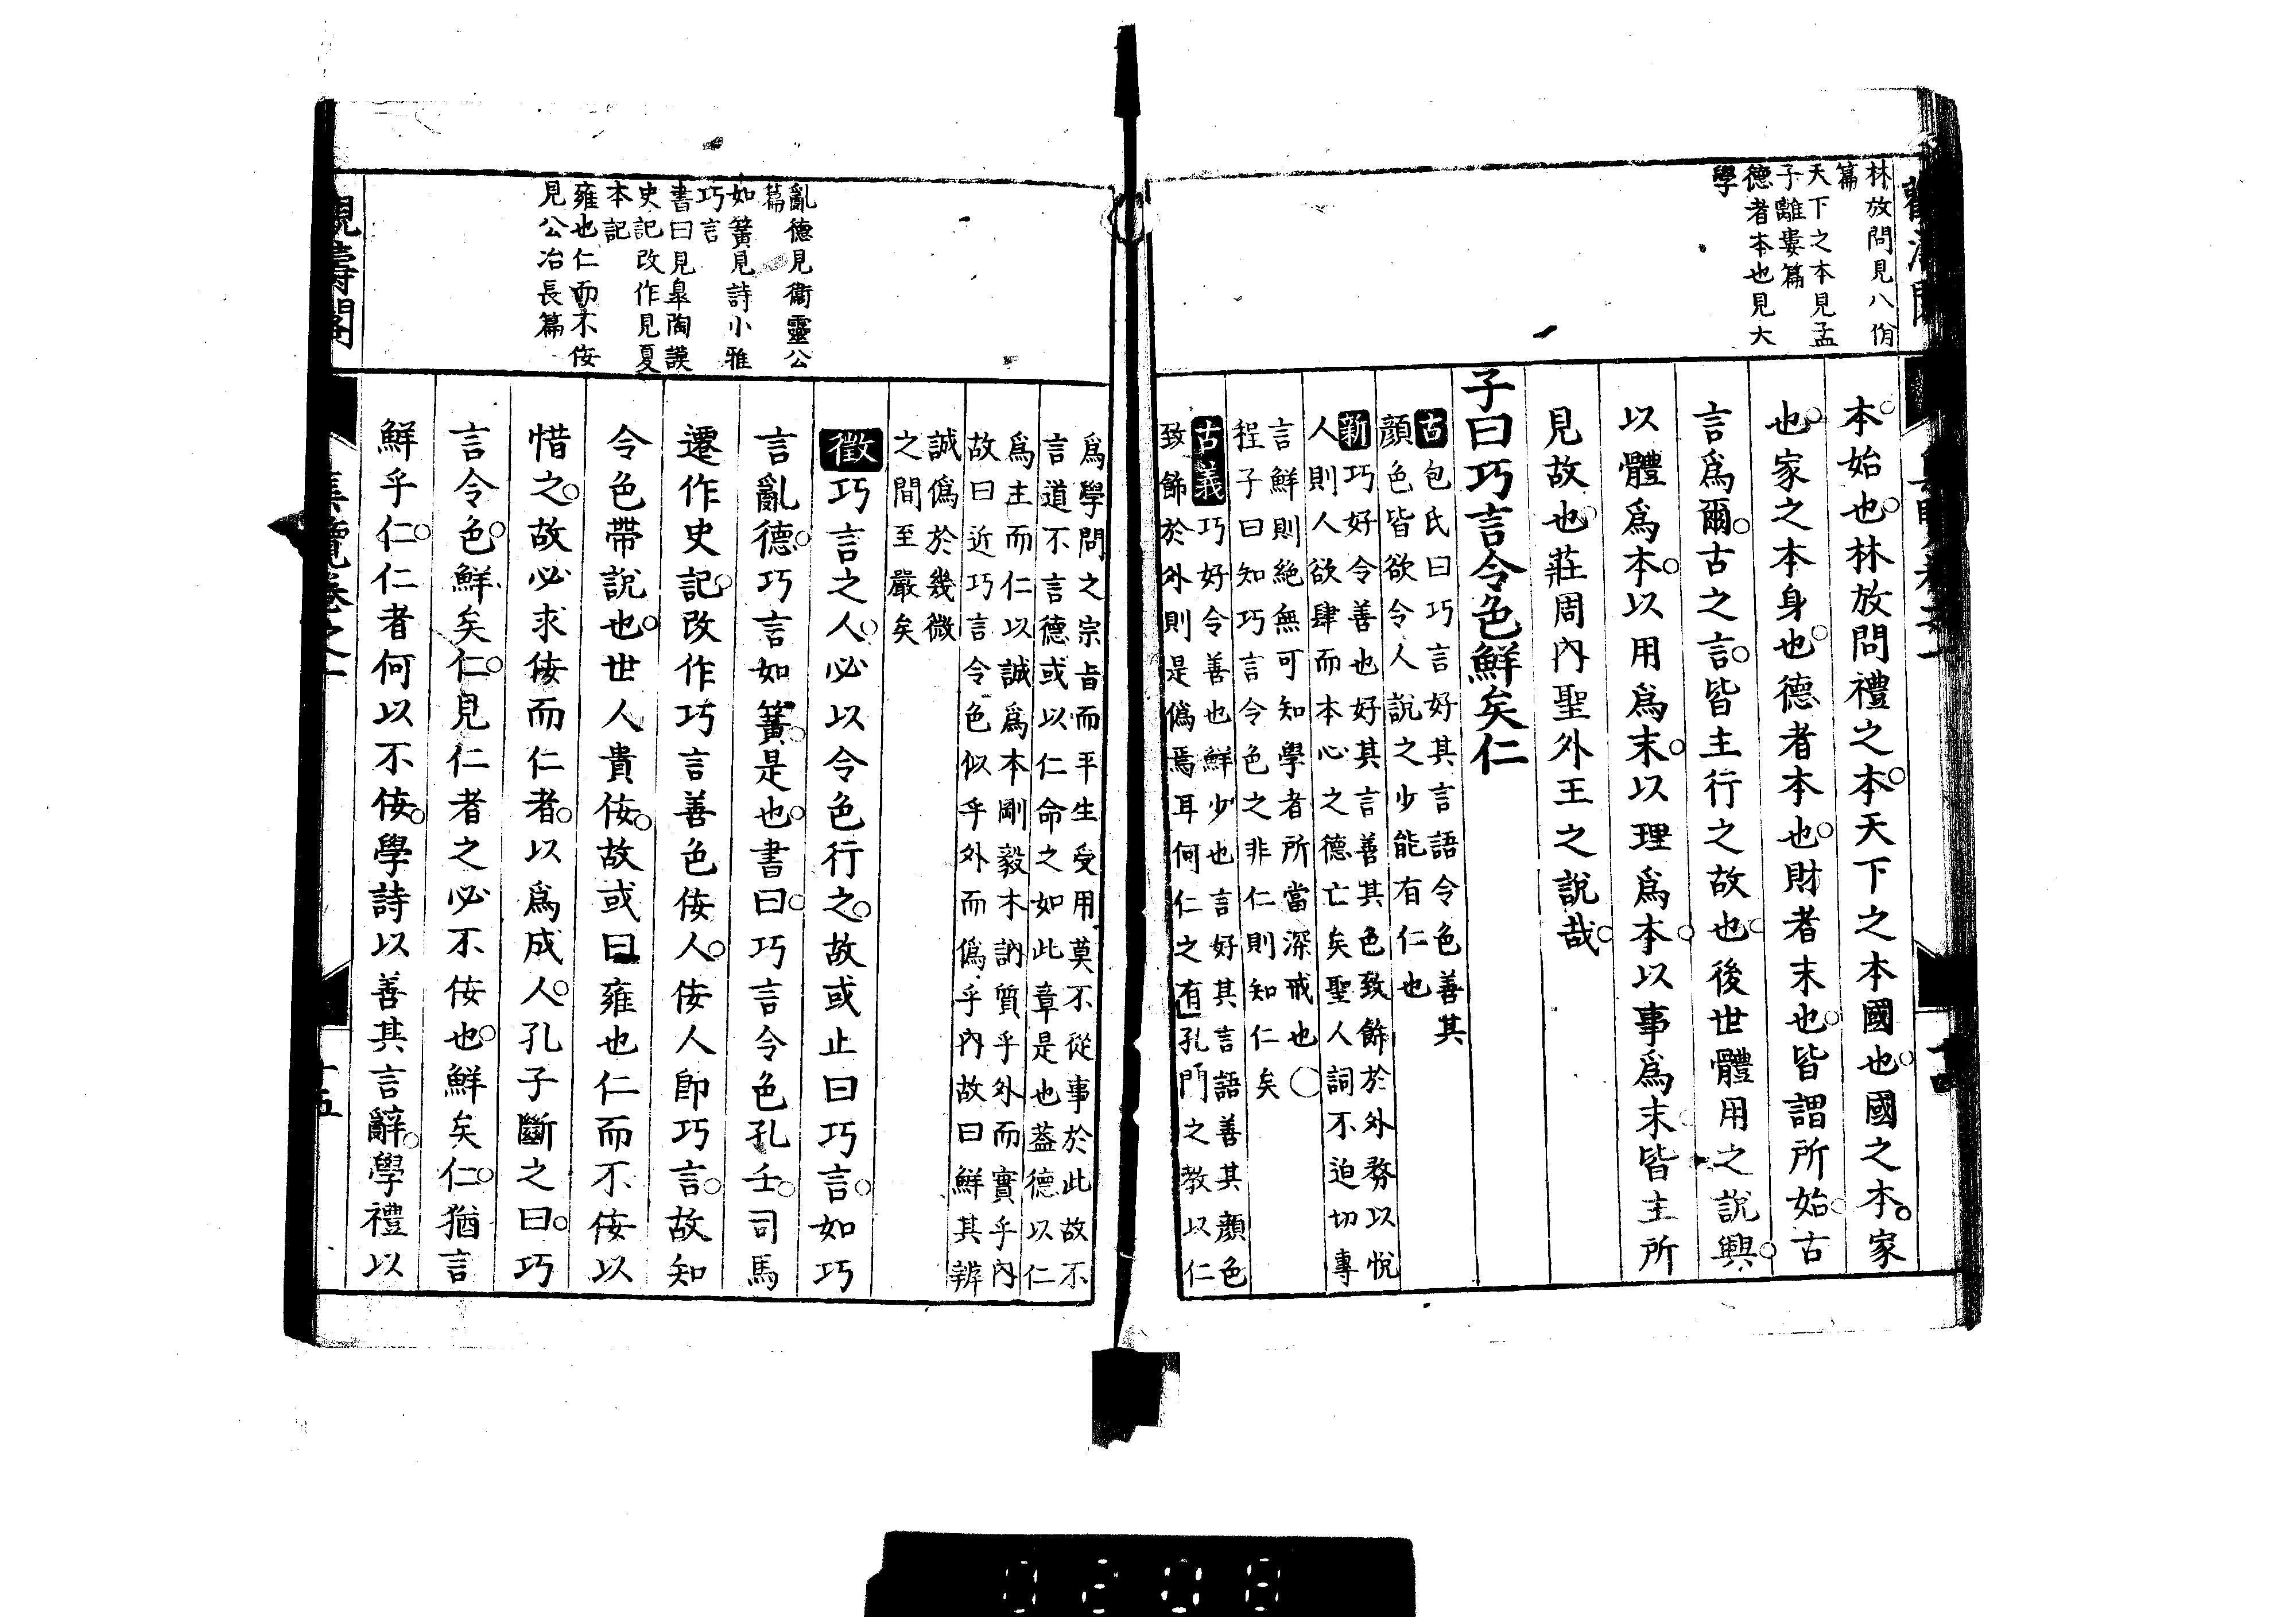 林放問見八佾
篇
天下之本見孟
子離婁篇
德者本也見大
學
本始也林放問禮之本天下之本國也國之本家
也家之本身也德者本也財者末也皆謂所始古
言爲爾古之言皆主行之故也後世體用之說興
以體爲本以用爲末以理爲本以事爲末皆主所
見故也莊周內聖外王之說哉
子曰巧言令色鮮矣仁
古包氏曰巧言好其言語令色善其
顏色皆欲令人說之少能有仁也
新巧好令善也好其言善其色致飾於外務以悅
人則人欲肆而本心之德亡矣聖人詞不迫切專
言鮮則絕無可知學者所當深戒也○
程子曰知巧言令色之非仁則知仁矣
古義巧好令善也鮮少也言好其言語善其顏色
致飾於外則是僞焉耳何仁之有孔門之教以仁
亂德見衞靈公
篇
如簧見詩小雅
巧言
書曰見皐陶謨
史記改作見夏
本記
雍也仁而不佞
見公冶長篇
爲學問之宗旨而平生受用莫不從事於此故不
言道不言德或以仁命之如此章是也葢德以仁
爲主而仁以誠爲本剛毅木訥質乎外而實乎內
故曰近巧言令色似乎外而僞乎內故曰鮮其辨
誠僞於幾微
之間至嚴矣
徵巧言之人必以令色行之故或止曰巧言如巧
言亂德巧言如簧是也書曰巧言令色孔壬司馬
遷作史記改作巧言善色佞人佞人卽巧言故知
令色帶說也世人貴佞故或曰雍也仁而不佞以
惜之故必求佞而仁者以爲成人孔子斷之曰巧
言令色鮮矣仁見仁者之必不佞也鮮矣仁猶言
鮮乎仁仁者何以不佞學詩以善其言辭學禮以
觀濤閣
集覽卷之一
十五